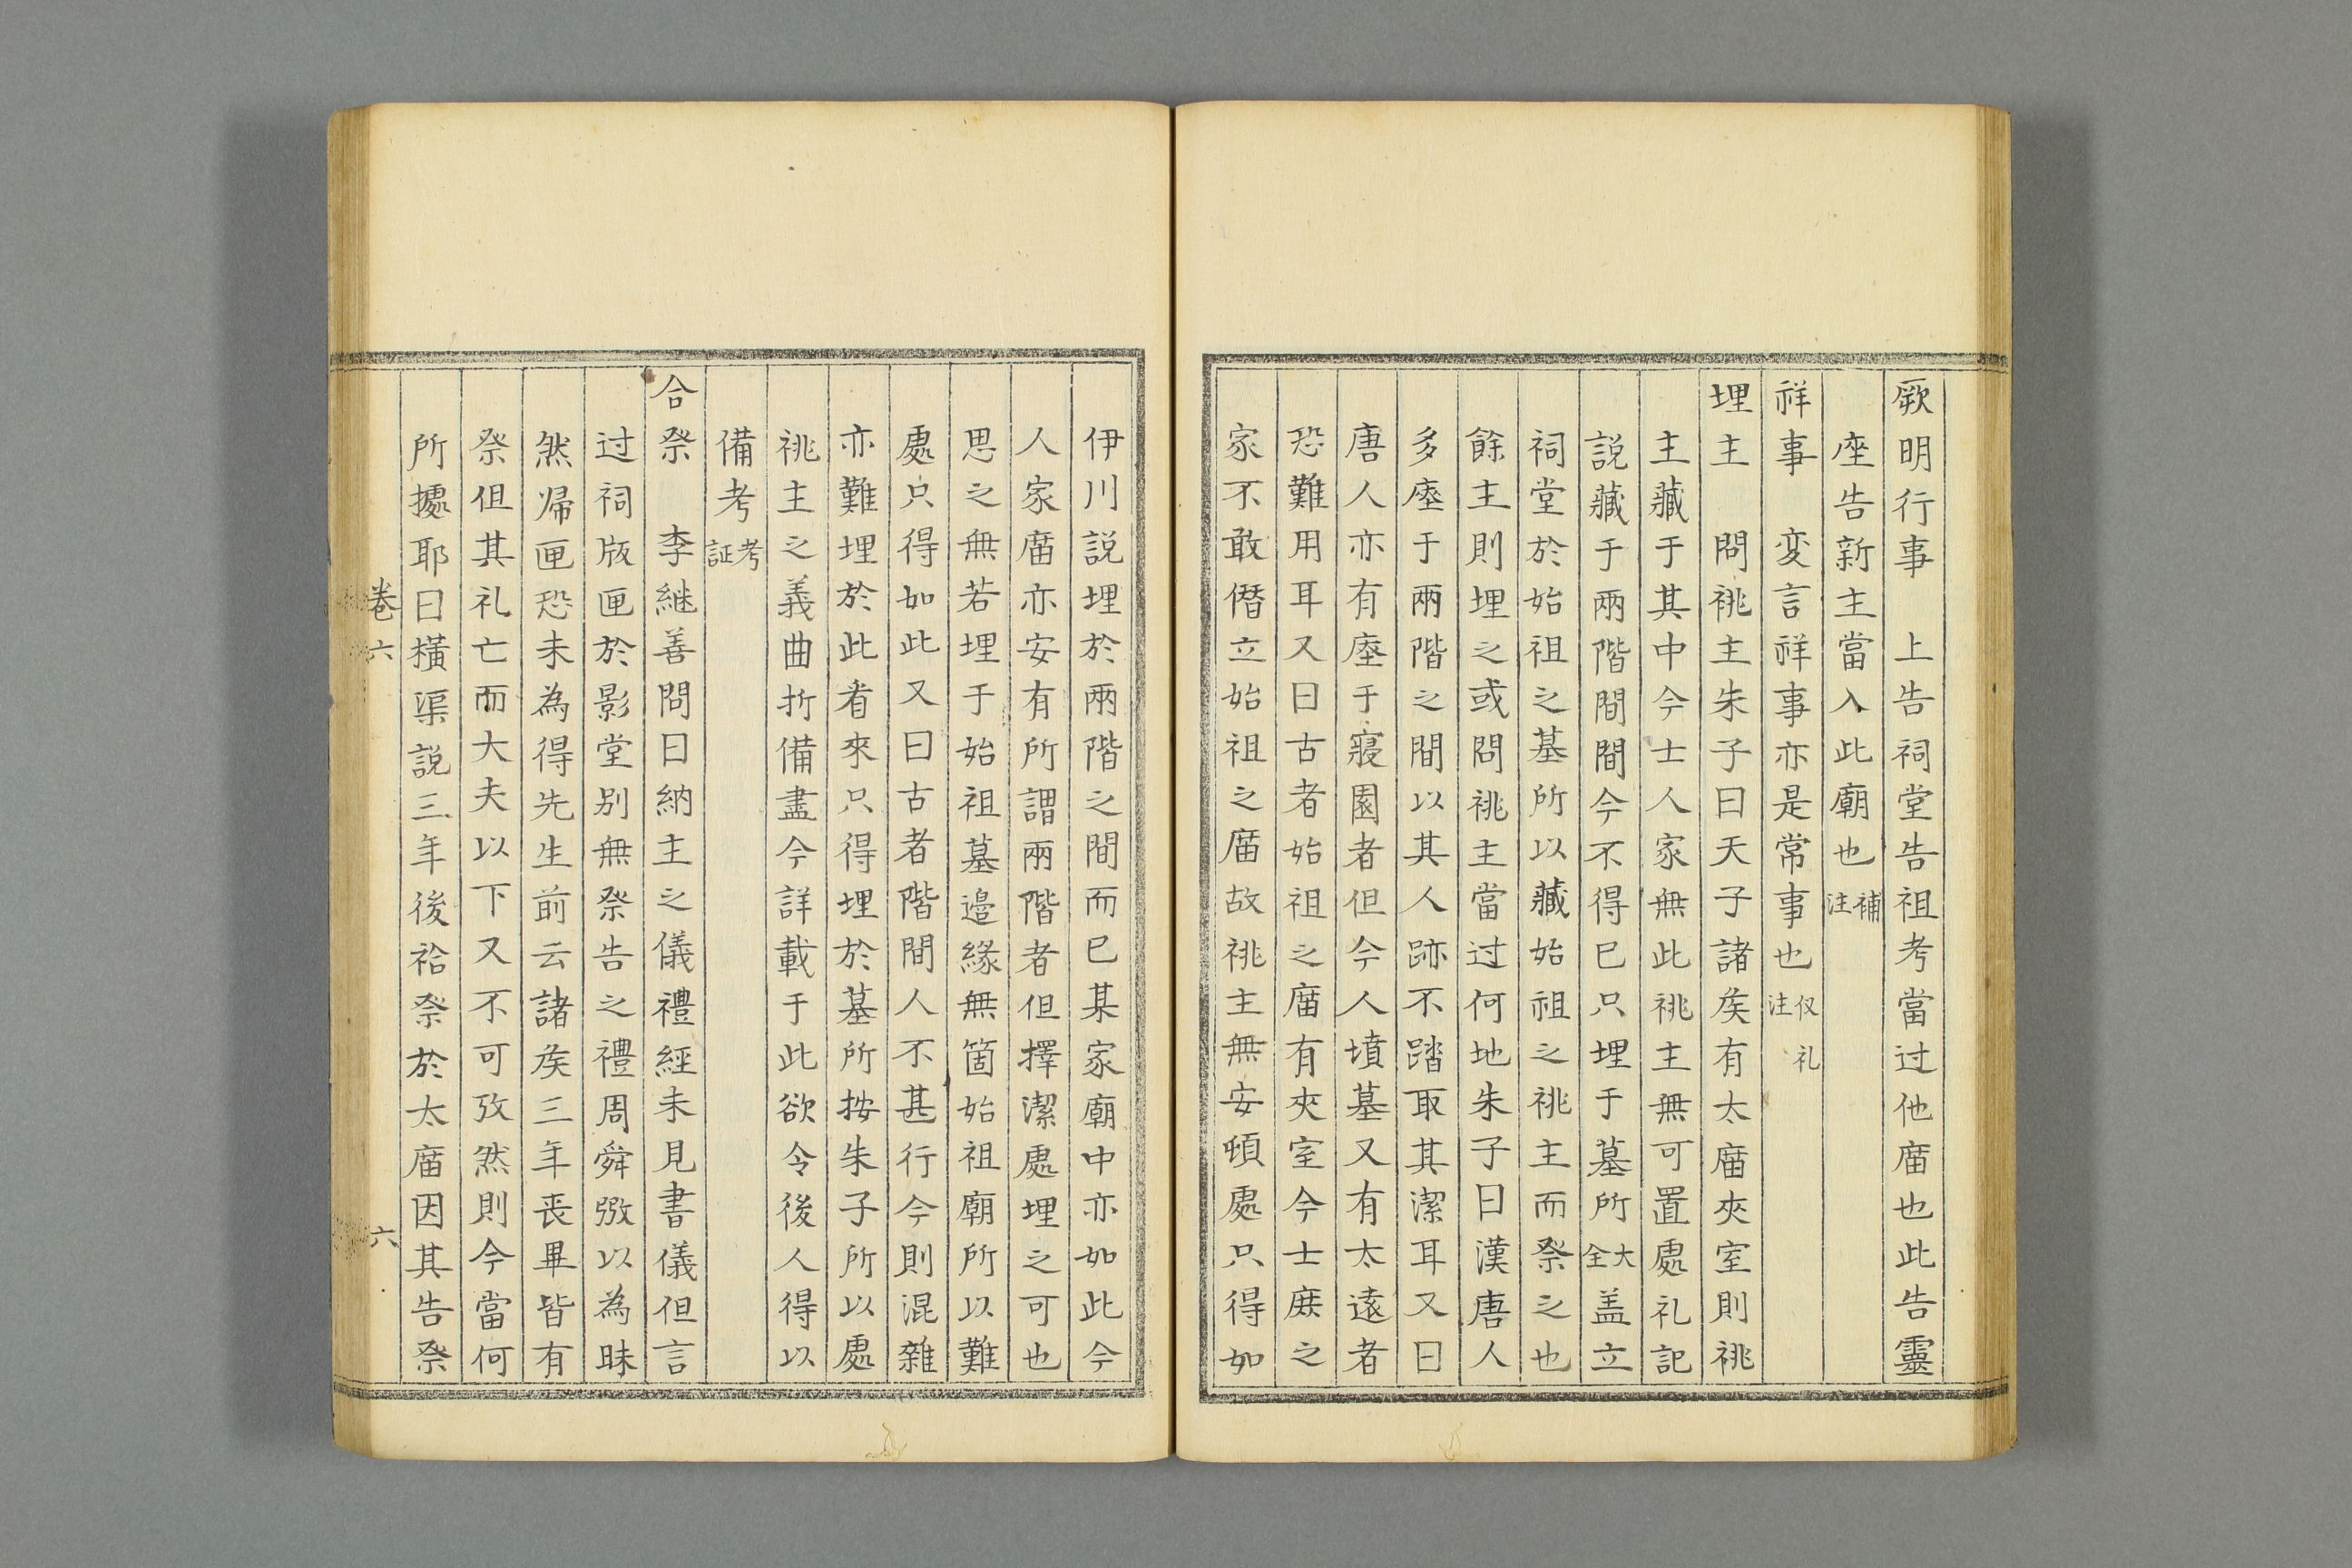 厥明行事　上告祠堂告祖考當过他庿也此告靈
座告新主當入此廟也補注
祥事　変言祥事亦是常事也仪礼注
埋主　問祧主朱子曰天子諸矦有太庿夾室則祧
主藏于其中今士人家無此祧主無可置處礼記
說藏于兩階間今不得已只埋于墓所大全盖立
祠堂於始祖之墓所以藏始祖之祧主而祭之也
餘主則埋之或問祧主當过何地朱子曰漢唐人
多瘞于兩階之間以其人跡不踏取其潔耳又曰
唐人亦有瘞于寢園者但今人墳墓又有太遠者
恐難用耳又曰古者始祖之庿有夾室今士庻之
家不敢僭立始祖之庿故祧主無安頓處只得如
伊川説埋於兩階之間而已某家廟中亦如此今
人家庿亦安有所謂兩階者但擇潔處埋之可也
思之無若埋于始祖墓邉緣無箇始祖廟所以難
處只得如此又曰古者階間人不甚行今則混雜
亦難埋於此看來只得埋於墓所按朱子所以處
祧主之義曲折備盡今詳載于此欲令後人得以
備考考証
合祭　李継善問曰納主之儀禮經未見書儀但言
过祠版匣於影堂别無祭告之禮周舜弼以為昧
然帰匣恐未為得先生前云諸矦三年丧畢皆有
祭但其礼亡而大夫以下又不可攷然則今當何
所據耶曰橫渠説三年後祫祭於太庿因其告祭
卷六
六